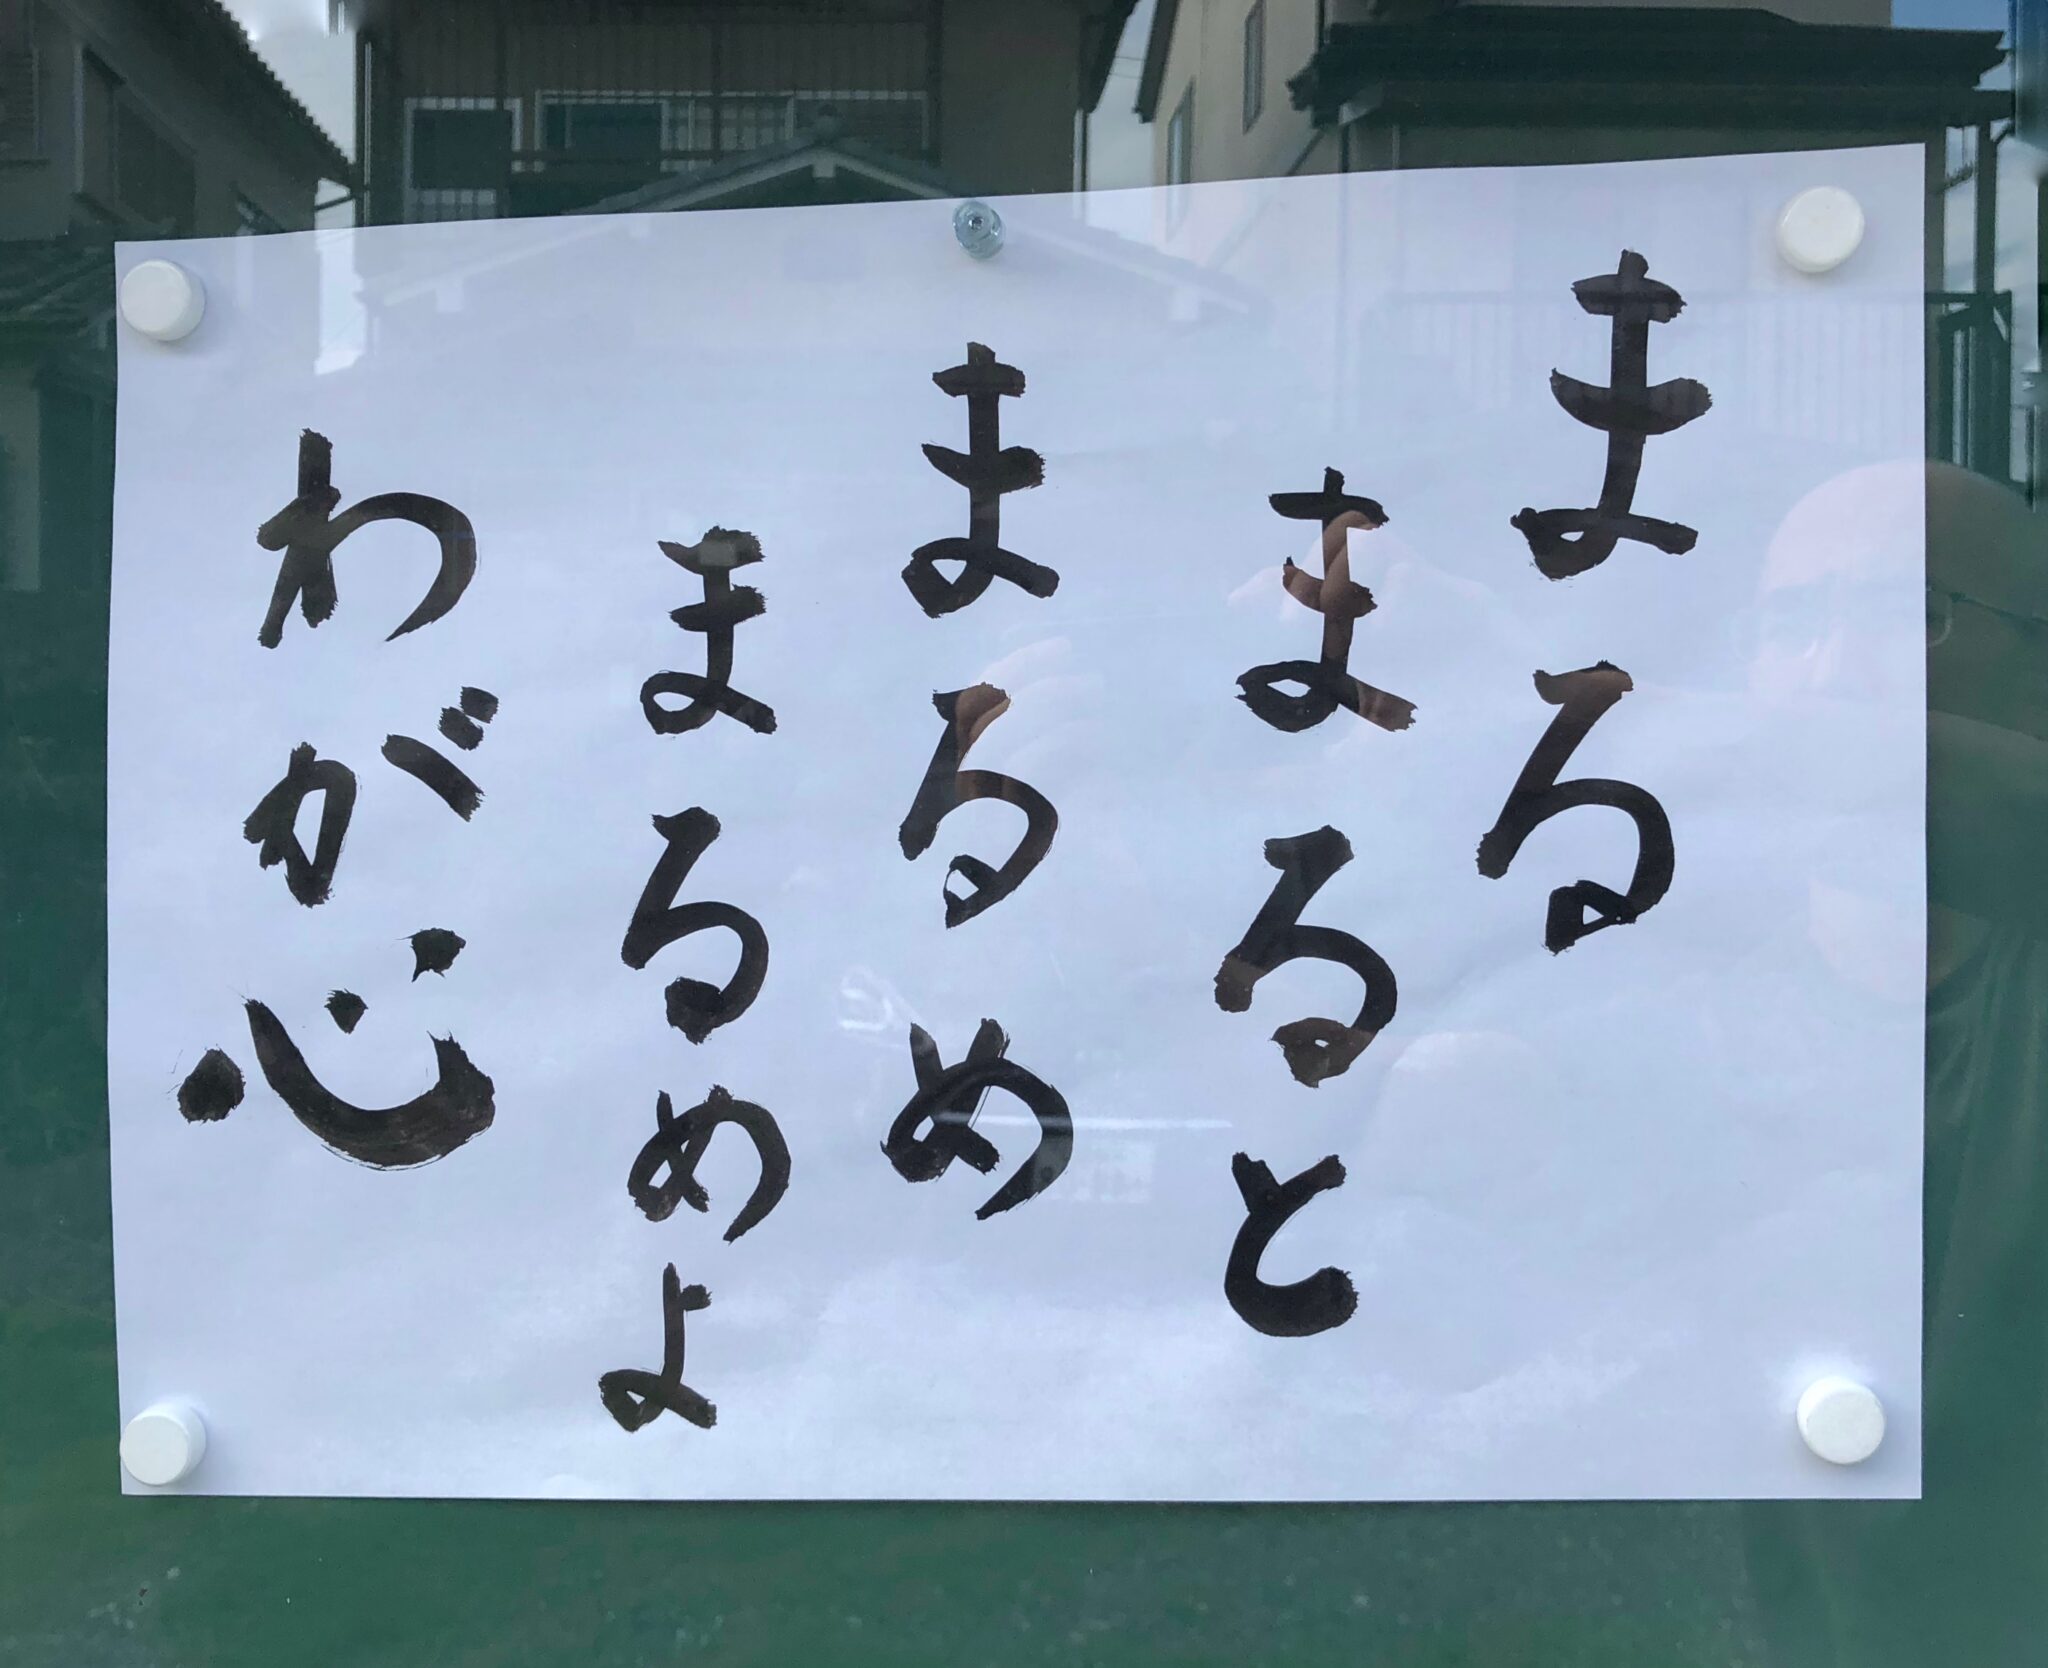 まる
まるまると
まるめ
まるめよ
わが心